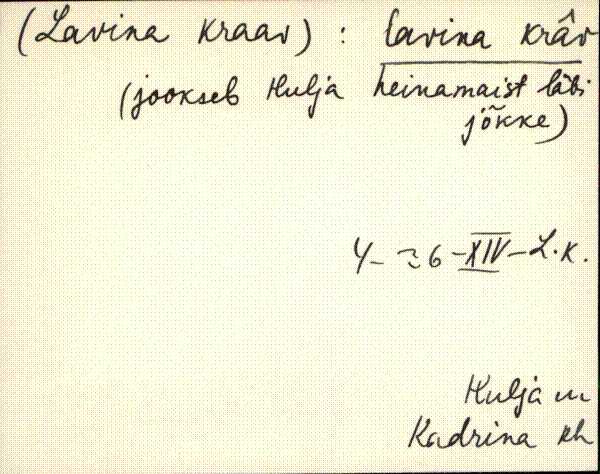 (Lavina kraav) : lavina krâv
(jookseb Hulja heinamaist läbi
jõkke)
XIV – L. K.
Hulja m
Kadrina kh